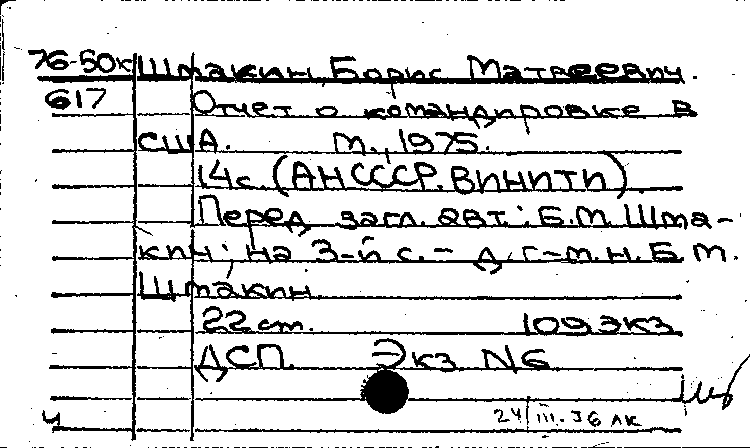 76-50к Штакин, Борис Матвеевич.
617 Отчет о командировке в
США. М., 1975.
14с. (АН СССР. ВИНИТИ).
Перед загл. авт.: Б.М. Шта-
кин; на 3-й с. - д. г-м. н. Б.М.
Штакин.
22 ст. 109 экз
ДСП. Экз N6
ч 24/III.76 ЛК